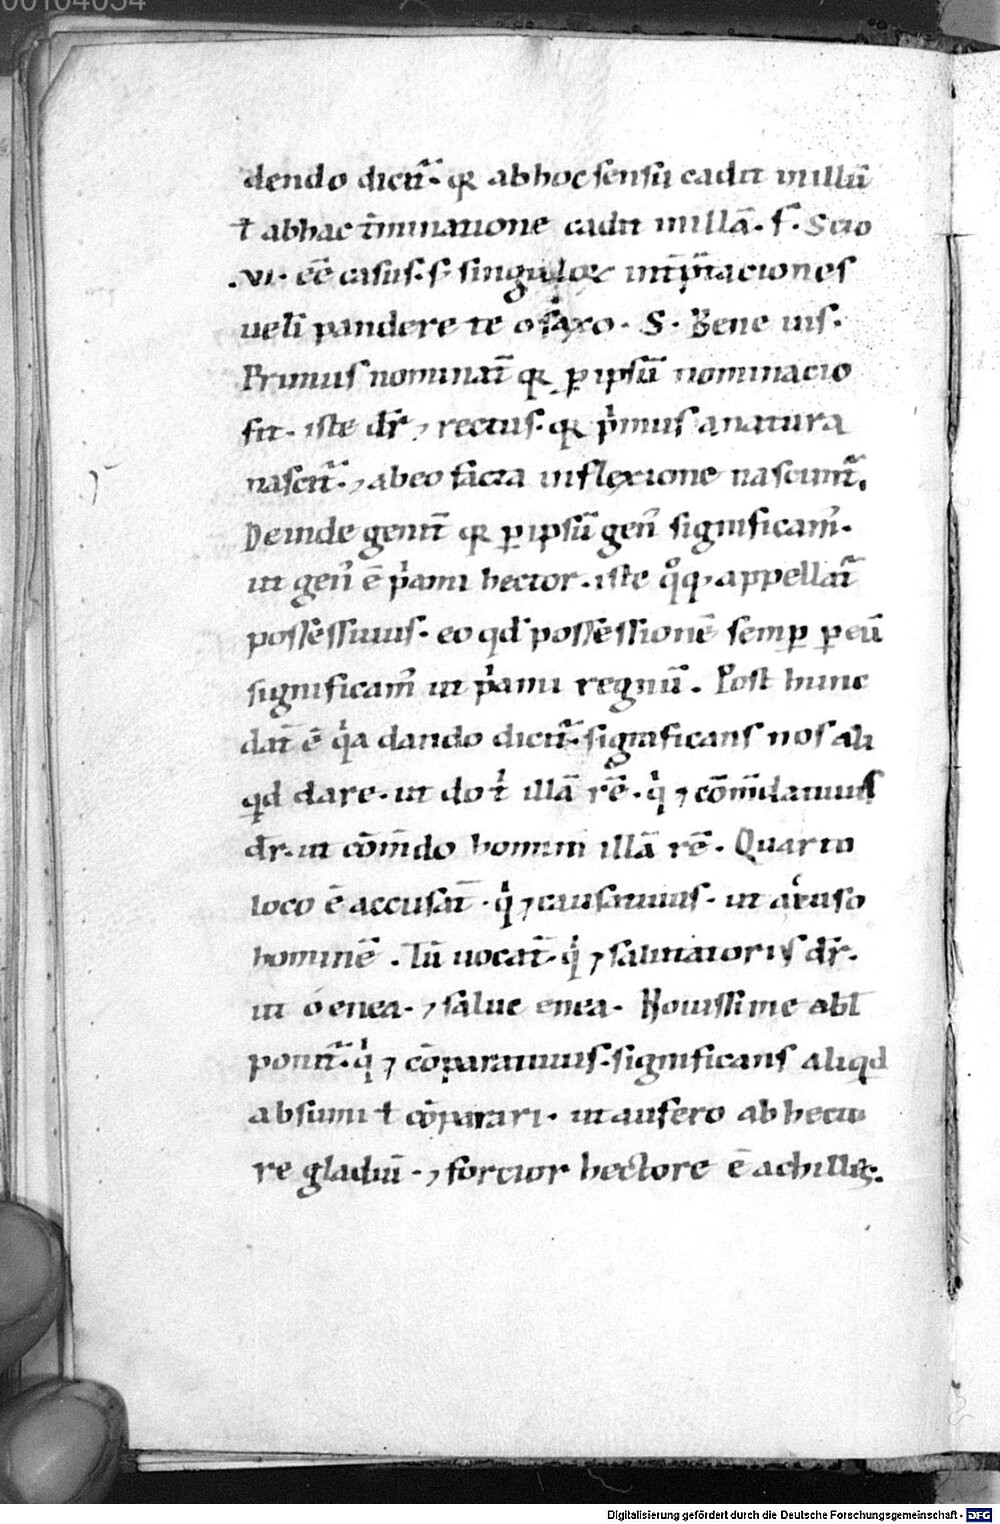 00104654
dendo dicit̄. qr abhoc sensū cadit in illū
ł abhac t̄minatione cadit in illā. f̄. Scio
.vi. eē casus. s; singuloꝝ int̄p̄taciones
ueli pandere te o saxo. S. Bene uis.
Primus nominat̄ qr ꝑ ipsū nominacio
fit. iste dr̄ ⁊ rectus. qr pͥmus a natura
nascit̄. ⁊ abeo facta inflexione nascunt̄.
Deinde genit̄ qr ꝑ ipsū gen̄ significam̄.
ut gen̄ ē pͥami hector. iste qͦq; appellat̄
possessiuus. eo qd̄ possessionē semꝑ ꝑ eū
significam̄ ut pͥami regnū. Post hunc
dat̄ ē qͥa dando dicit̄. significans nos ali
qd dare. ut do tͥ illā rē. qͥ ⁊ cōm̄datiuus
dr̄. ut cōm̄do homini illā rē. Quarto
loco ē accusat̄. qͥ ⁊ causatiuus. ut accuso
hominē. Tū uocat̄. qͥ ⁊ salutatoris dr̄.
ut o enea. ⁊ salue enea. Nouissime abl̄
ponit̄. qͥ ⁊ cōparatiuus. significans aliqd
absumi ł cōparari. ut aufero ab hecto
re gladiū. ⁊ forcior hectore ē achilles.
Digitalisierung gefördert durch die Deutsche Forschungsgemeinschaft - DFG